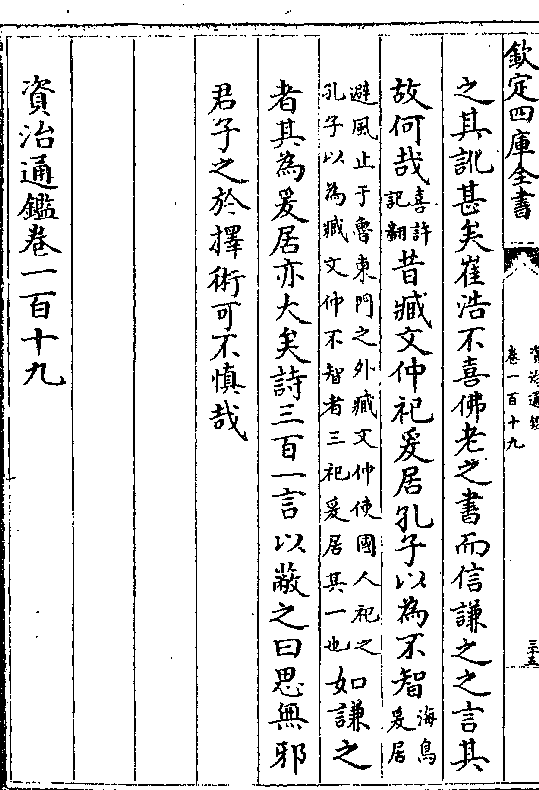 欽定四庫全書
資治通鑑
卷一百十九
三十五
之其訛甚矣崔浩不喜佛老之書而信謙之之言其
故何哉喜許記翻昔臧文仲祀爰居孔子以為不智海鳥爰居
避風止于魯東門之外臧文仲使國人祀之孔子以為臧文仲不智者三祀爰居其一也如謙之
者其為爰居亦大矣詩三百一言以蔽之曰思無邪
君子之於擇術可不慎哉
資治通鑑卷一百十九